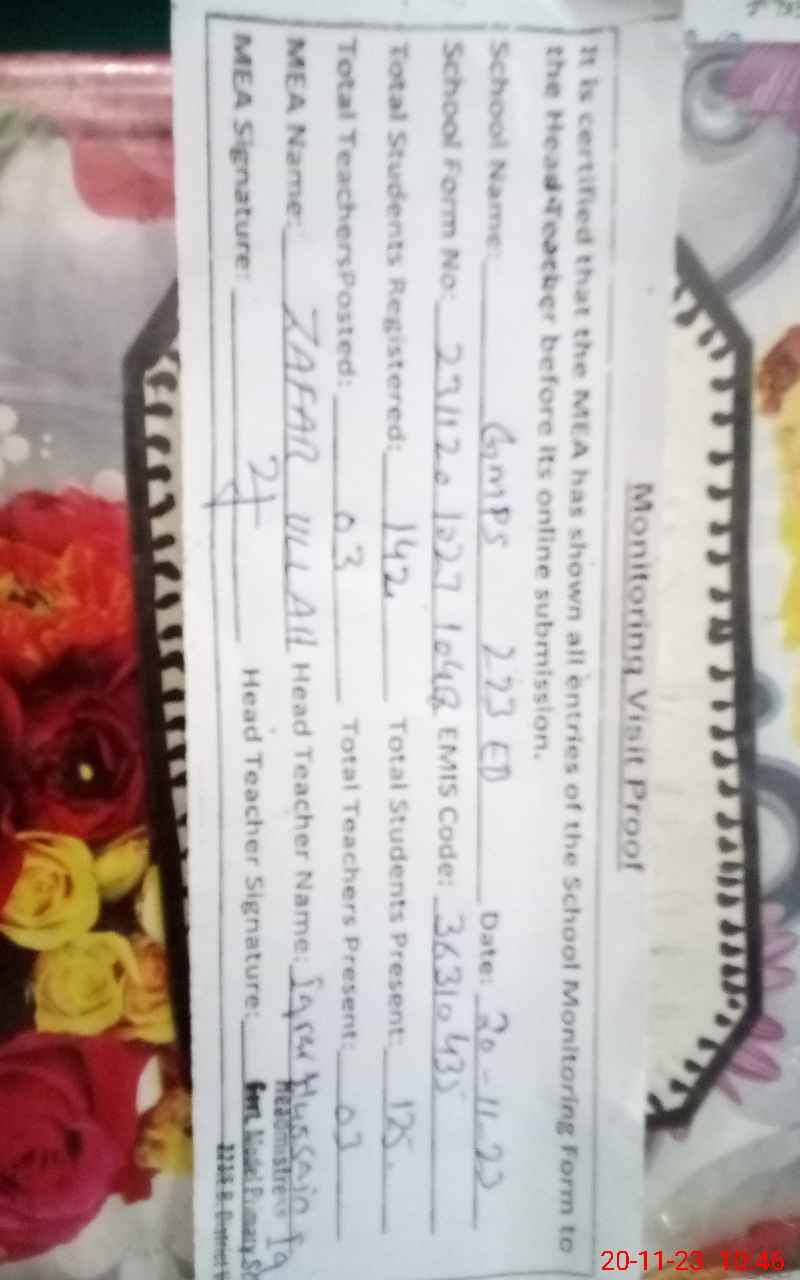 Monitoring Visit Proof
It is certified that the MEA has shown all entries of the School Monitoring Form to
the Head Teacher before its online submission.
School Name: GMPS 223 EB Date: 20-11-23
School Form No: EMIS Code: 36310435
Total Students Registered: 142 Total Students Present: 125
Total TeachersPosted: 03 Total Teachers Present: 03
MEA Name: ZAFAR ULLAH Head Teacher Name: Hussain
MEA Signature: Head Teacher Signature:
Headmistress
Govt. Model Primary
20-11-23 10:46